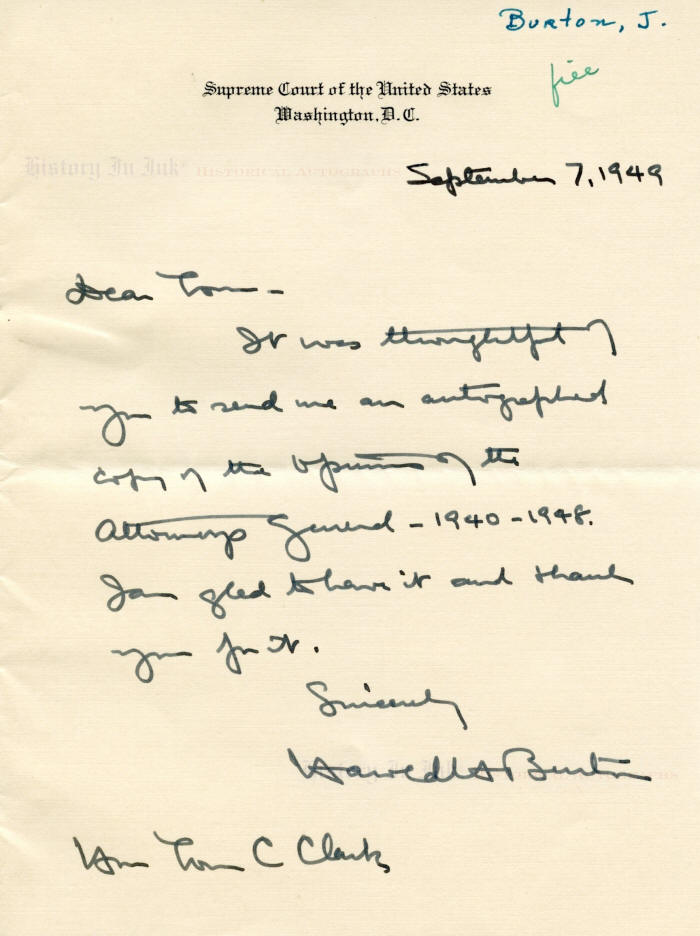 Burton, J.
file
Supreme Court of the United States
Washington, D.C.
History In Ink® HISTORICAL AUTOGRAPHS
September 7, 1949
Dear Tom –
It was thoughtful of
you to send me an autographed
copy of the Opinions of the
Attorneys General – 1940 – 1948.
I am glad to have it and thank
you for it.
Sincerely
Harold H Burton
History In Ink HISTORICAL AUTOGRAPHS
Hon Tom C Clark